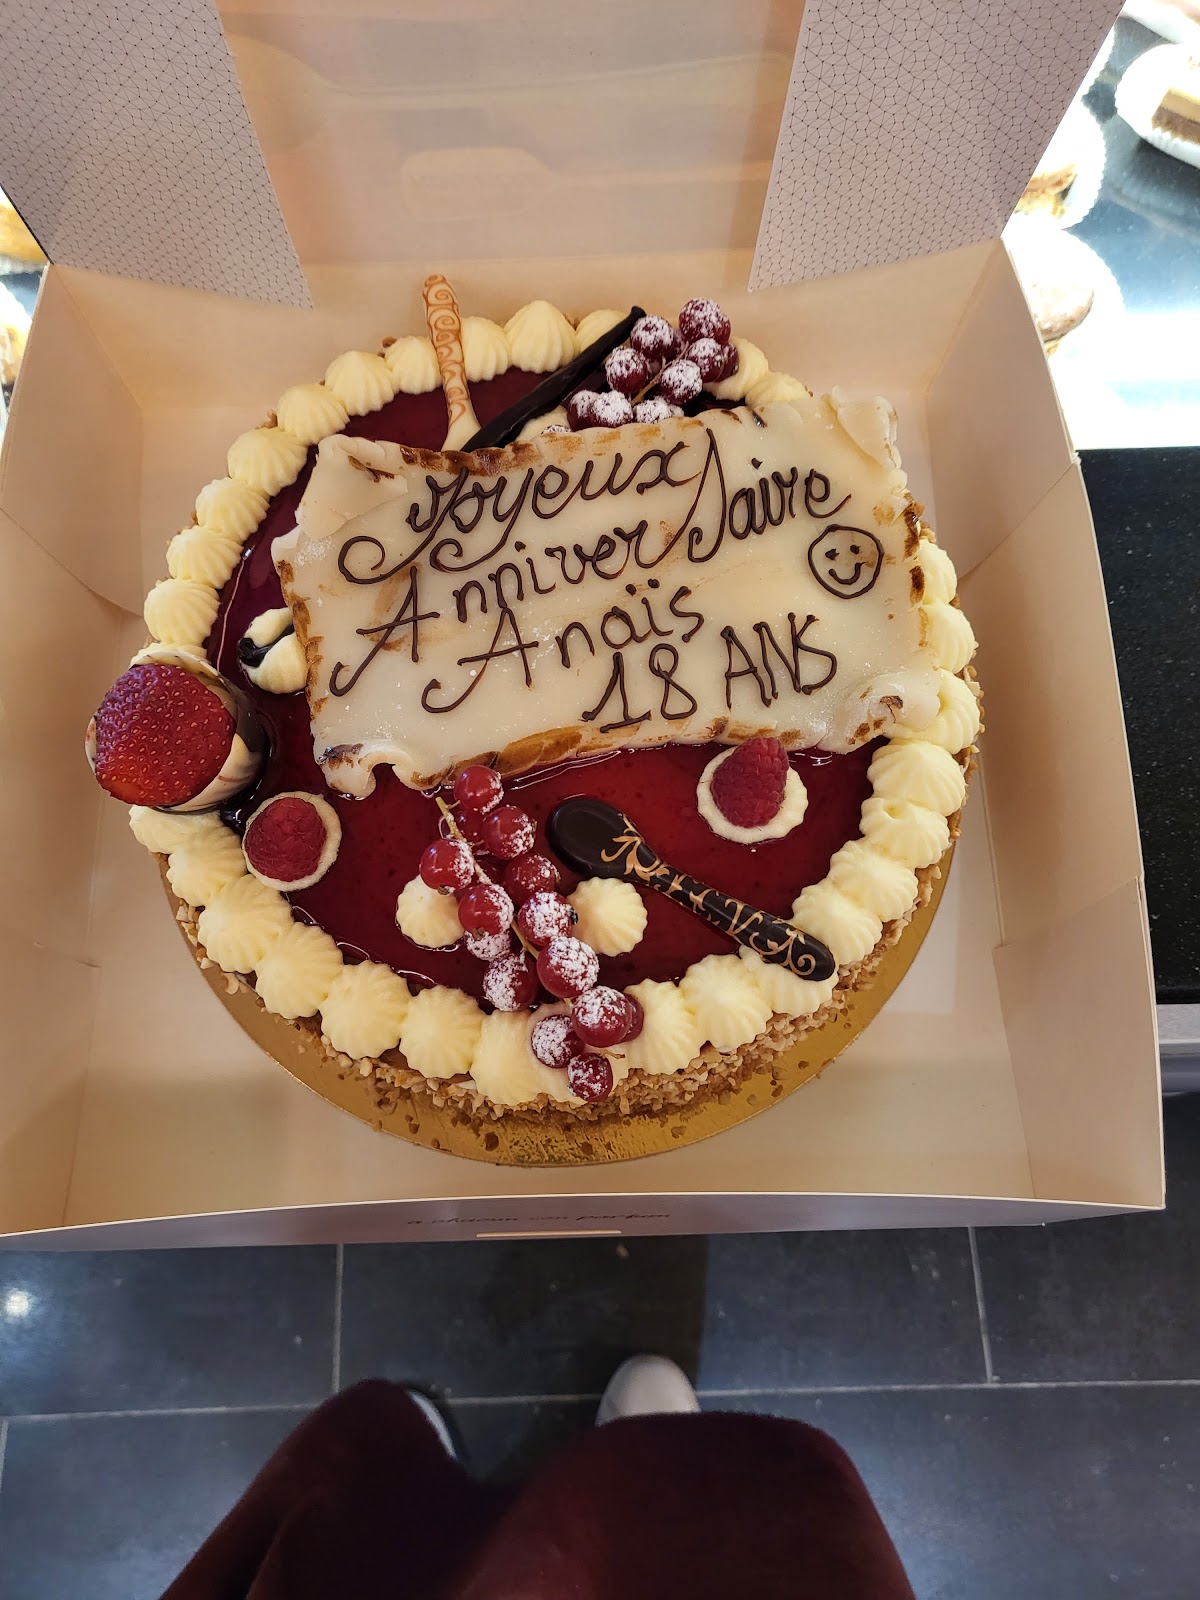 Joyeux
Anniversaire
Anaïs
18 ANS
à chacun son parfum